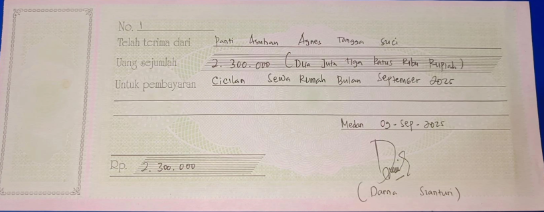 No. 1
Telah terima dari Panti Asuhan Agnes Tangga Suci
Uang sejumlah 2.300.000 (Dua Juta Tiga Ratus Ribu Rupiah)
Untuk pembayaran Cicilan Sewa Rumah Bulan September 2025
Medan 09-Sep-2025
Rp. 2.300.000
(Darna Sianturi)